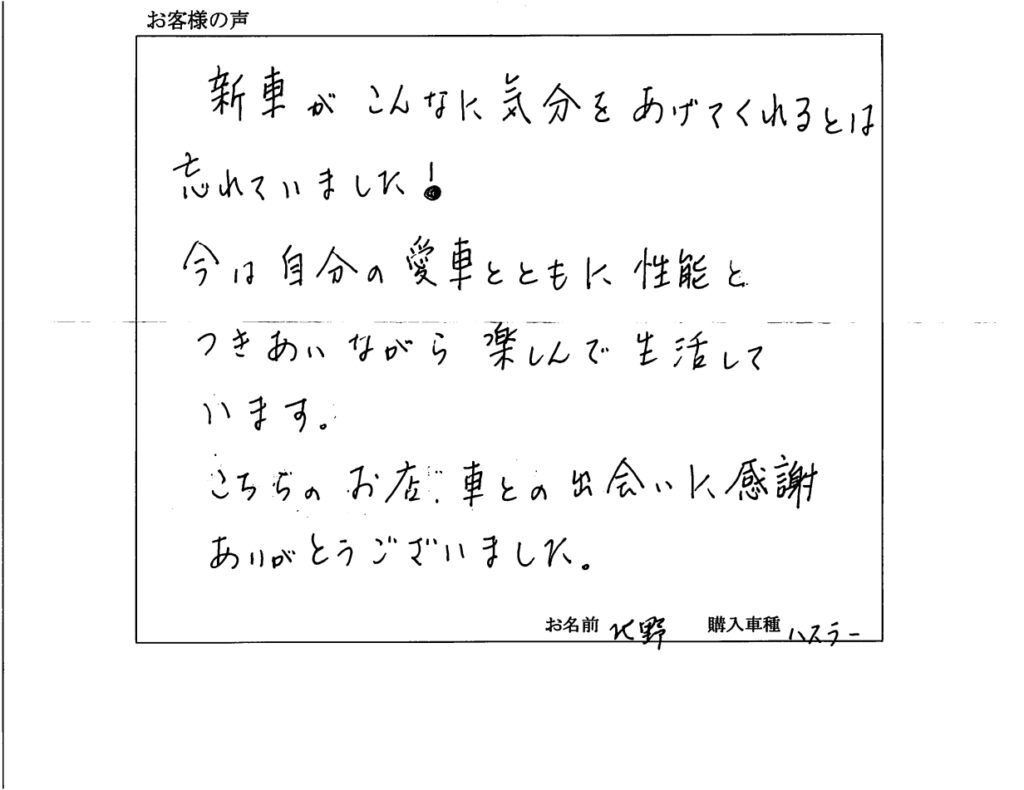 お客様の声
新車がこんなに気分をあげてくれるとは
忘れていました!
今は自分の愛車とともに性能と
つきあいながら楽しんで生活して
います。
こちらのお店、車との出会いに感謝
ありがとうございました。
お名前 北野 購入車種 ハスラー